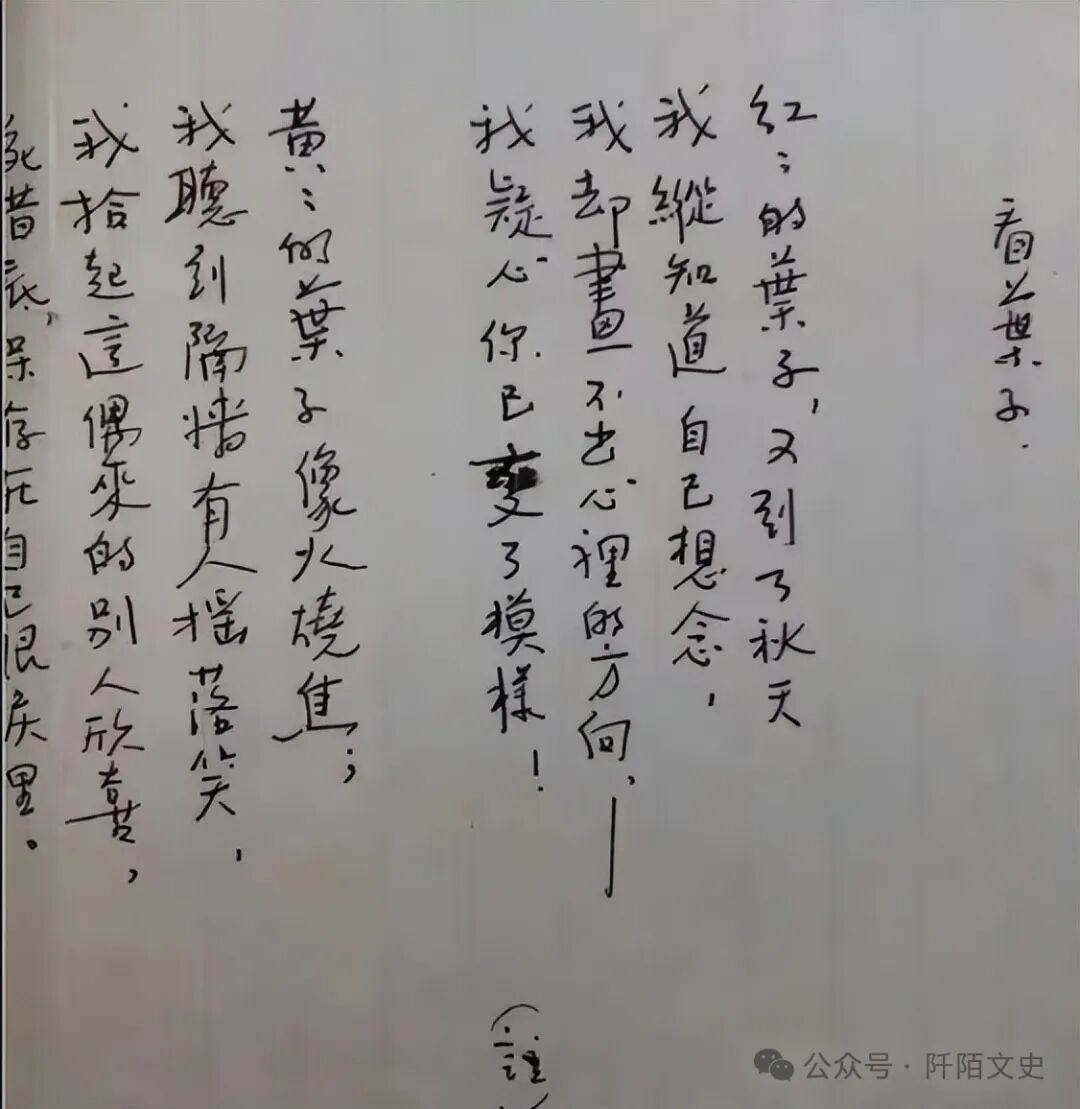 看葉子.
紅:的葉子,又到了秋天
我縱知道自己想念,
我却畫不出心裡的方向,——
我疑心你已變了模樣!
黃:的葉子像火燒焦;
我聽到隔墻有人摇落笑,
我拾起這偶來的別人欣喜,
昔底,保存在自己很戾里。
(註)
公众号·阡陌文史